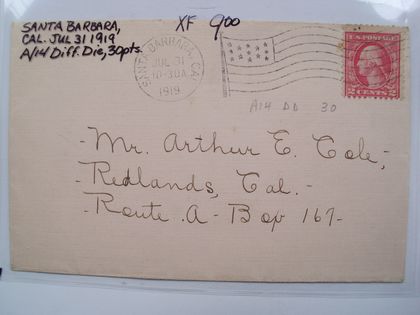 SANTA BARBARA,
CAL. JUL 31 1919
A/14 Diff. Die, 30pts.
XF 9.00
SANTA BARBARA, CAL.
JUL 31
10-30A
1919
U.S. POSTAGE
2 CENTS 2
A14 DD 30
-Mr. Arthur E. Cole,-
-Redlands, Cal.-
-Route .A- Box 167-